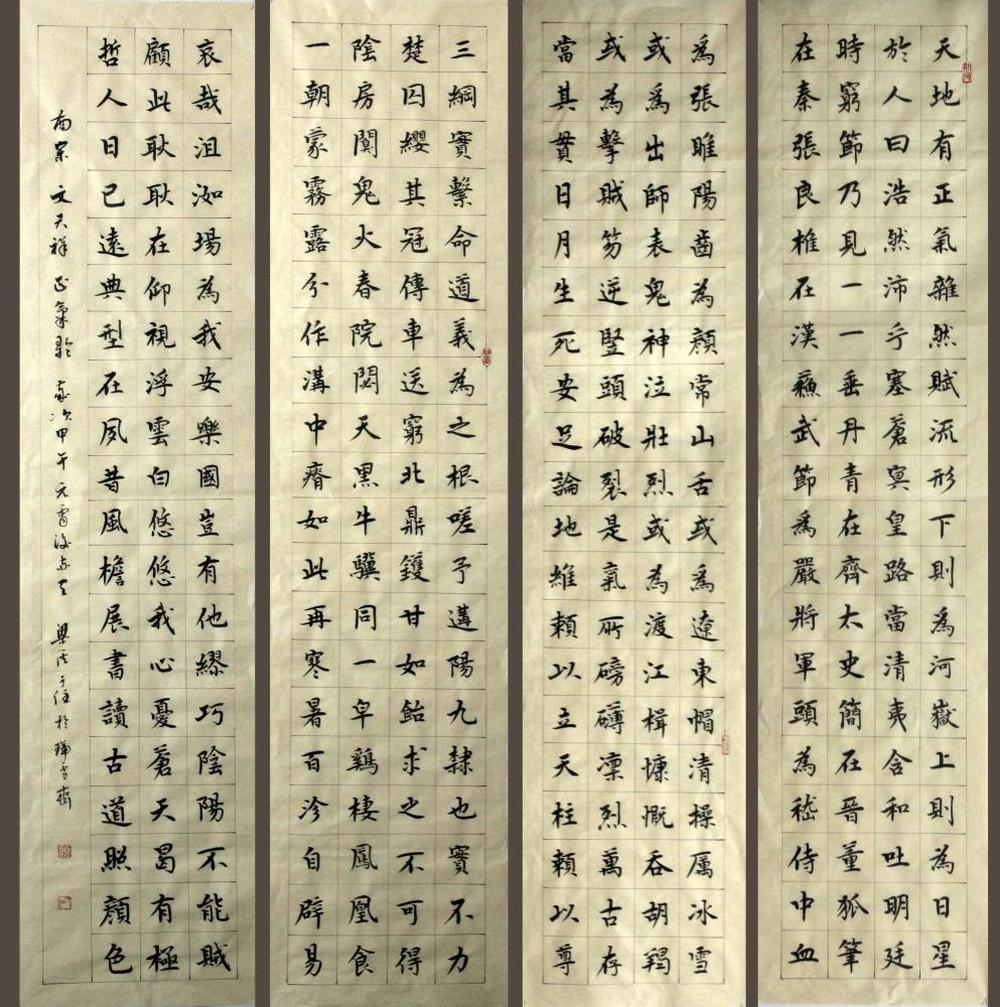 天地有正氣雜然賦流形下則為河嶽上則為日星
於人曰浩然沛乎塞蒼冥皇路當清夷含和吐明廷
時窮節乃見一一垂丹青在齊太史簡在晉董狐筆
在秦張良椎在漢蘇武節爲嚴將軍頭為嵇侍中血
爲張睢陽齒為顏常山舌或爲遼東帽清操厲冰雪
或爲出師表鬼神泣壯烈或為渡江楫慷慨吞胡羯
或為擊賊笏逆豎頭破裂是氣所磅礴凜烈萬古存
當其貫日月生死安足論地維賴以立天柱賴以尊
三綱實繫命道義為之根嗟予遘陽九隸也實不力
楚囚纓其冠傳車送窮北鼎鑊甘如飴求之不可得
陰房闃鬼火春院閟天黑牛驥同一皁鷄棲鳳凰食
一朝蒙霧露分作溝中瘠如此再寒暑百沴自辟易
哀哉沮洳場為我安樂國豈有他繆巧陰陽不能賊
顧此耿耿在仰視浮雲白悠悠我心憂蒼天曷有極
哲人日已遠典型在夙昔風檐展書讀古道照顏色
南宋文天祥正氣歌歲次甲午元宵後